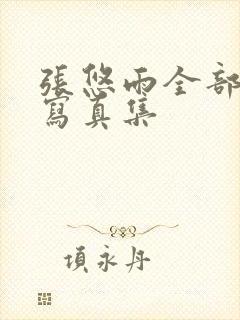 張悠雨全部
寫真集
項永丹